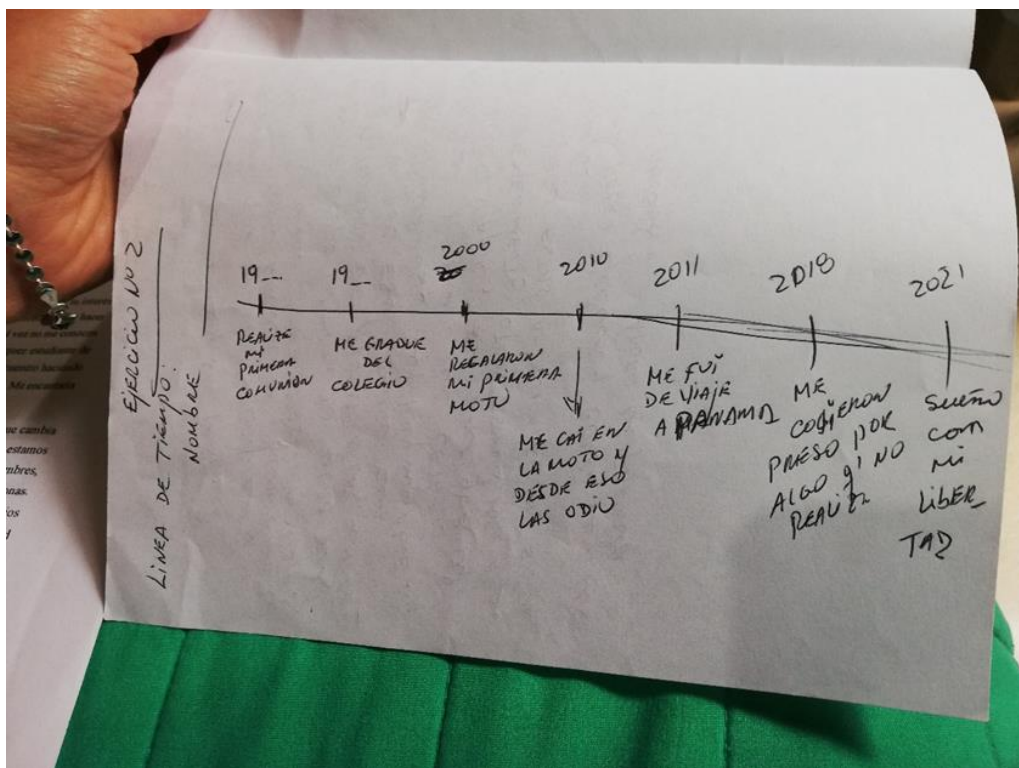 EJERCICIO Nº 2
LINEA DE TIEMPO:
NOMBRE
19__
REALIZE
MI
PRIMERA
COMUNION
19__
ME GRADUE
DEL
COLEGIO
2000
ME
REGALARON
MI PRIMERA
MOTO
2010
ME CAI EN
LA MOTO Y
DESDE ESO
LAS ODIO
2011
ME FUI
DE VIAJE
A PANAMA
2018
ME
COGIERON
PRESO POR
ALGO q' NO
REALIZE
2021
SUEÑO
COM
MI
LIBER_
TAD
que cambia
estamos